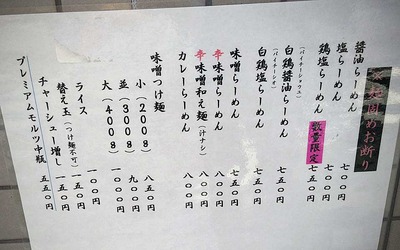 醤油らーめん 七〇〇円
塩らーめん 七〇〇円
鶏塩らーめん 数量限定 七五〇円
(パイチーショウユ)
白鶏醤油らーめん 七五〇円
(パイチーシオ)
白鶏塩らーめん 七五〇円
味噌らーめん 七五〇円
辛味噌らーめん 八〇〇円
辛味噌和え麺(汁ナシ) 八〇〇円
カレーらーめん 八〇〇円
味噌つけ麺
小(200g) 八五〇円
並(300g) 九〇〇円
大(400g) 一〇〇〇円
ライス 一〇〇円
替え玉(つけ麺不可) 一五〇円
チャーシュー増し 一五〇円
プレミアムモルツ中瓶 五五〇円